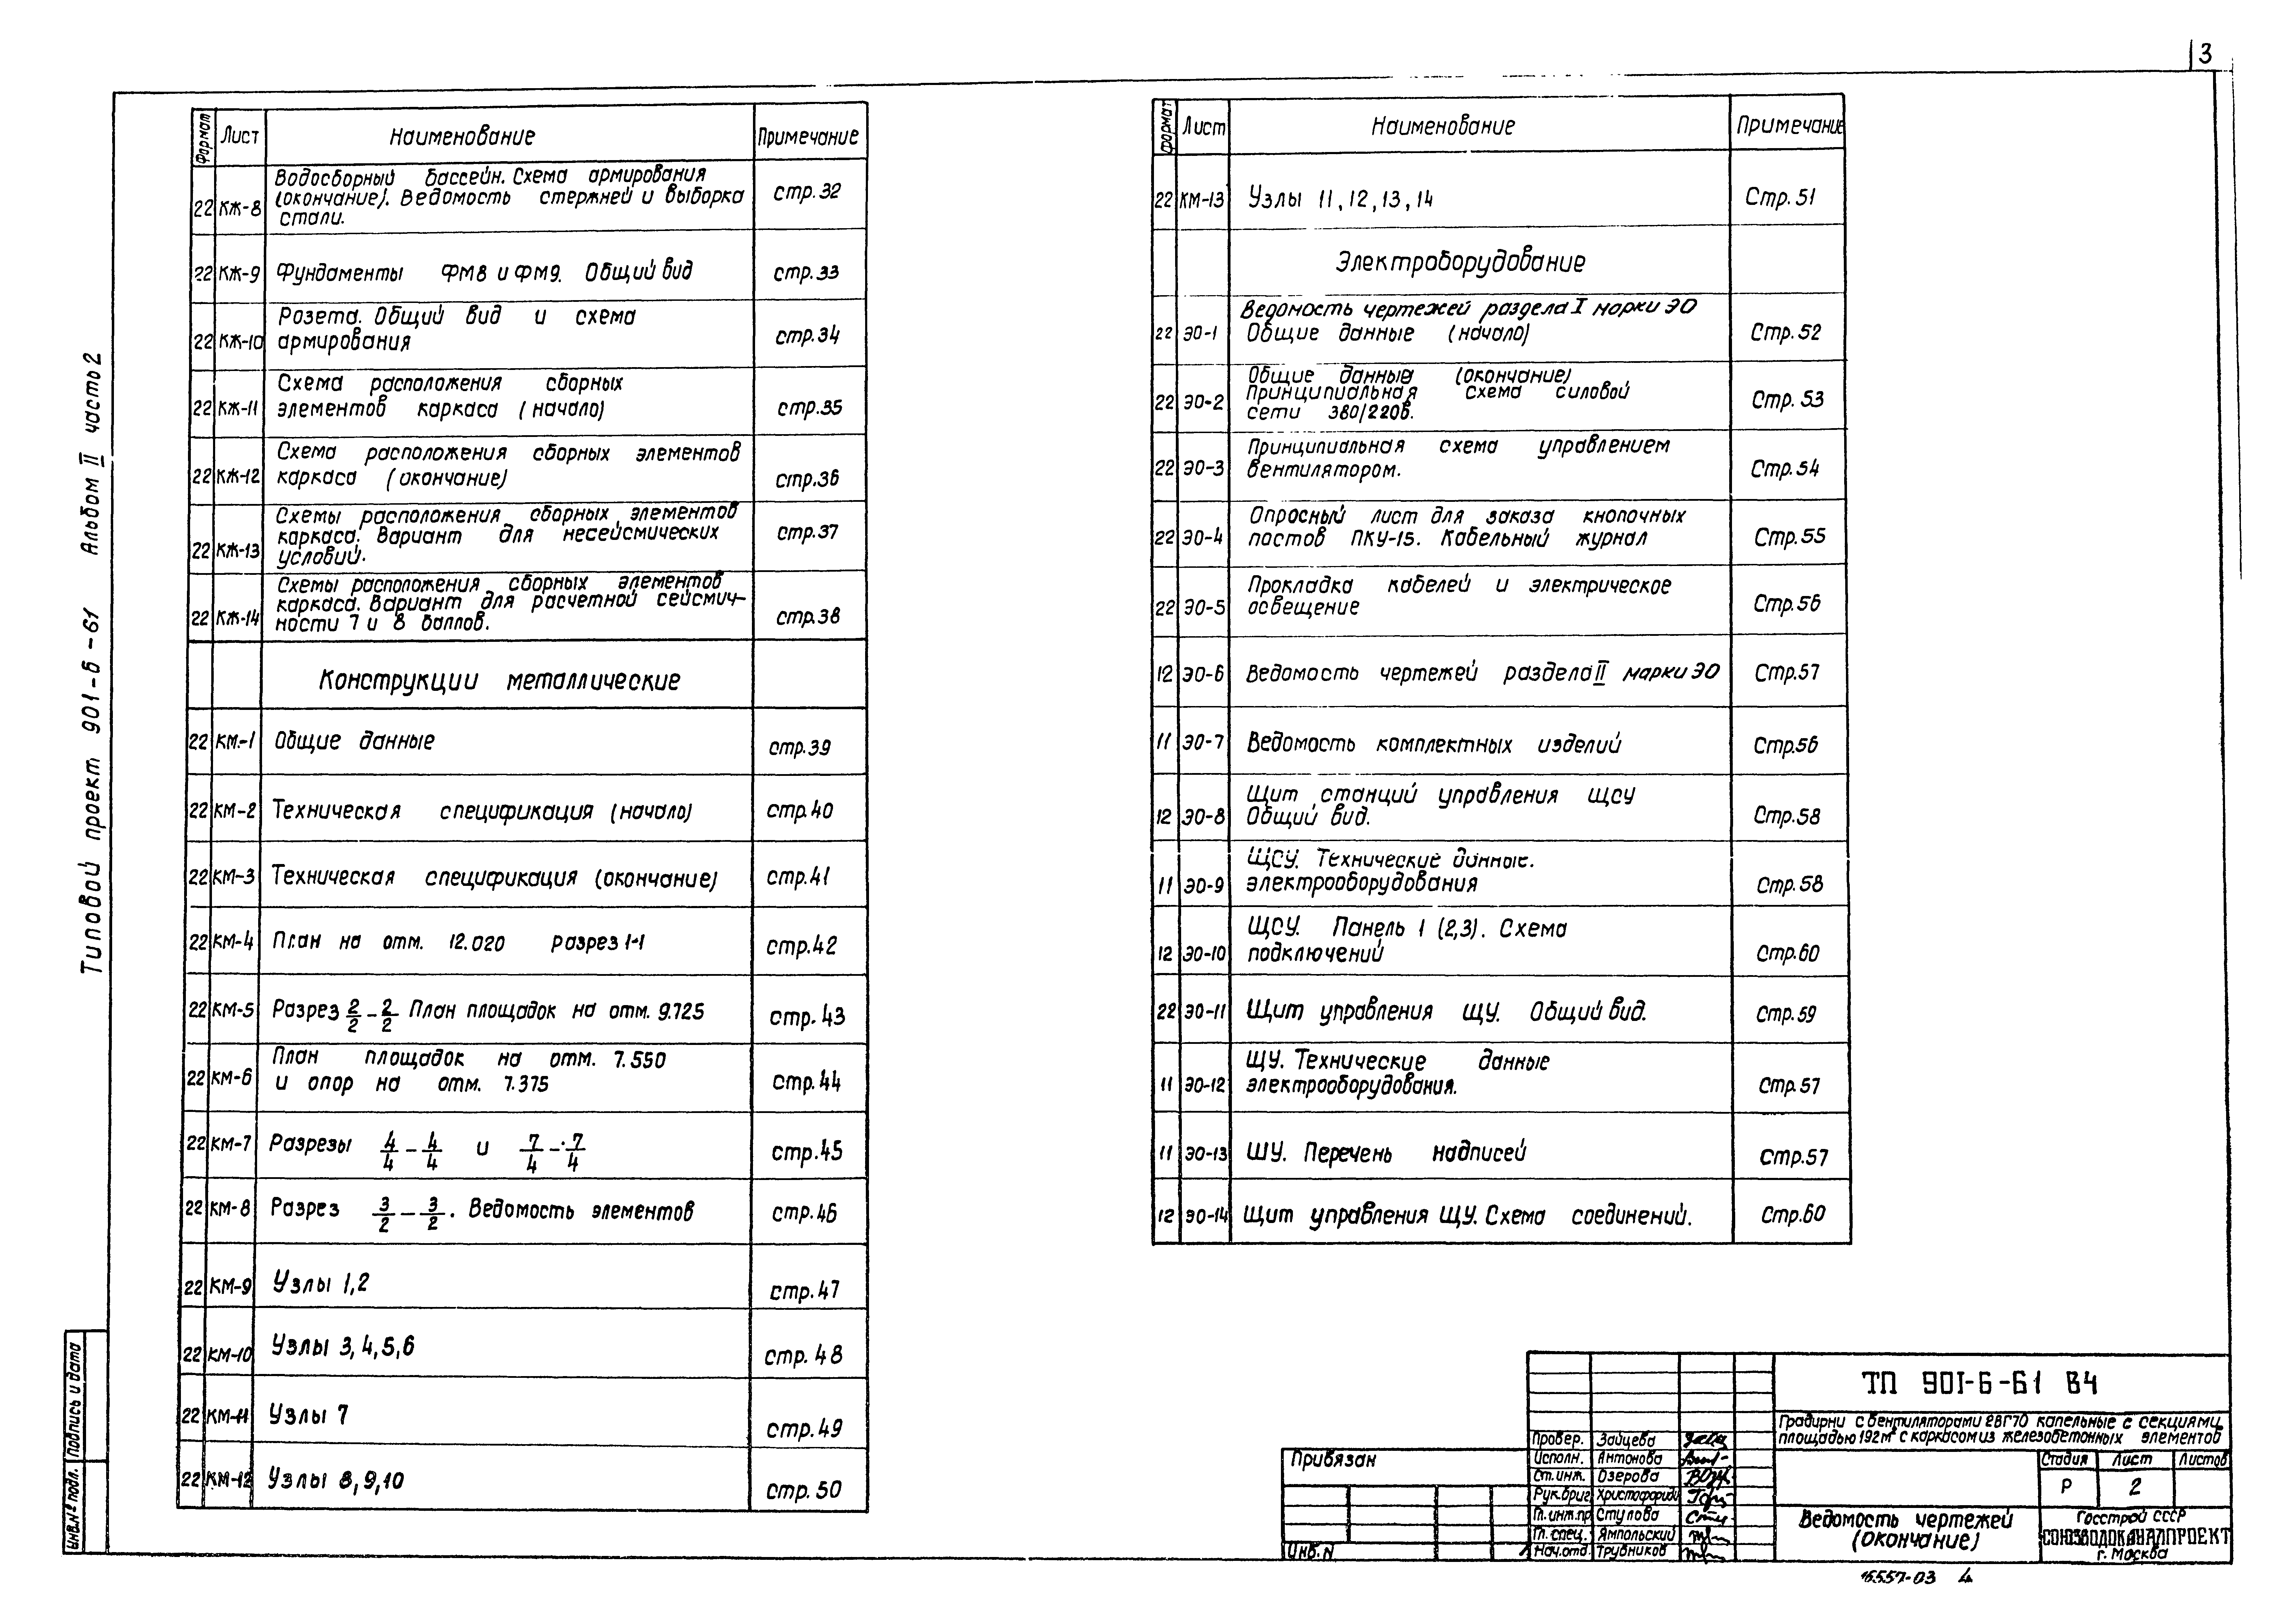 3
Типовой проект 901-6-61 Альбом II часть 2
Формат Лист Наименование Примечание
22 КЖ-8 Водосборный бассейн. Схема армирования
(окончание). Ведомость стержней и выборка
стали. стр.32
22 КЖ-9 Фундаменты ФМ8 и ФМ9. Общий вид стр.33
22 КЖ-10 Розета. Общий вид и схема
армирования стр.34
22 КЖ-11 Схема расположения сборных
элементов каркаса (начало) стр.35
22 КЖ-12 Схема расположения сборных элементов
каркаса (окончание) стр.36
22 КЖ-13 Схемы расположения сборных элементов
каркаса. Вариант для несейсмических
условий. стр.37
22 КЖ-14 Схемы расположения сборных элементов
каркаса. Вариант для расчетной сейсмич-
ности 7 и 8 баллов. стр.38
Конструкции металлические
22 КМ-1 Общие данные стр.39
22 КМ-2 Техническая спецификация (начало) стр.40
22 КМ-3 Техническая спецификация (окончание) стр.41
22 КМ-4 План на отм. 12.020 разрез 1-1 стр.42
22 КМ-5 Разрез 2/2 - 2/2 План площадок на отм. 9.725 стр.43
22 КМ-6 План площадок на отм. 7.550
и опор на отм. 7.375 стр.44
22 КМ-7 Разрезы 4/4 - 4/4 и 7/4 - 7/4 стр.45
22 КМ-8 Разрез 3/2 - 3/2. Ведомость элементов стр.46
22 КМ-9 Узлы 1,2 стр.47
22 КМ-10 Узлы 3,4,5,6 стр.48
22 КМ-11 Узлы 7 стр.49
22 КМ-12 Узлы 8,9,10 стр.50
Формат Лист Наименование Примечание
22 КМ-13 Узлы 11,12,13,14 Стр.51
Электроборудование
22 ЭО-1 Ведомость чертежей раздела I марки ЭО
Общие данные (начало) Стр.52
22 ЭО-2 Общие данные (окончание)
Принципиальная схема силовой
сети 380/220в. Стр.53
22 ЭО-3 Принципиальная схема управлением
вентилятором. Стр.54
22 ЭО-4 Опросный лист для заказа кнопочных
постов ПКУ-15. Кабельный журнал Стр.55
22 ЭО-5 Прокладка кабелей и электрическое
освещение Стр.56
12 ЭО-6 Ведомость чертежей раздела II марки ЭО Стр.57
11 ЭО-7 Ведомость комплектных изделий Стр.56
12 ЭО-8 Щит станций управления ЩСУ
Общий вид. Стр.58
11 ЭО-9 ЩСУ. Технические данные.
электрооборудования Стр.58
12 ЭО-10 ЩСУ. Панель 1 (2,3). Схема
подключений Стр.60
22 ЭО-11 Щит управления ЩУ. Общий вид. Стр.59
11 ЭО-12 ЩУ. Технические данные
электрооборудования. Стр.57
11 ЭО-13 ШУ. Перечень надписей Стр.57
12 ЭО-14 Щит управления ЩУ. Схема соединений. Стр.60
Инв.№ подл. Подпись и дата
Привязан
Инв. №
Провер. Зайцева
Исполн. Антонова
Ст.инж. Озерова
Рук.бриг. Христофориди
Гл.инж.пр Ступова
Гл. спец. Ямпольский
Нач.отд. Трубников
ТП 901-6-61 ВЧ
Градирни с вентиляторами 2ВГ70 капельные с секциями
площадью 192м² с каркасом из железобетонных элементов
Стадия Лист Листов
Р 2
Ведомость чертежей
(окончание)
Госстрой СССР
СОЮЗВОДОКАНАЛПРОЕКТ
г. Москва
15557-03 4